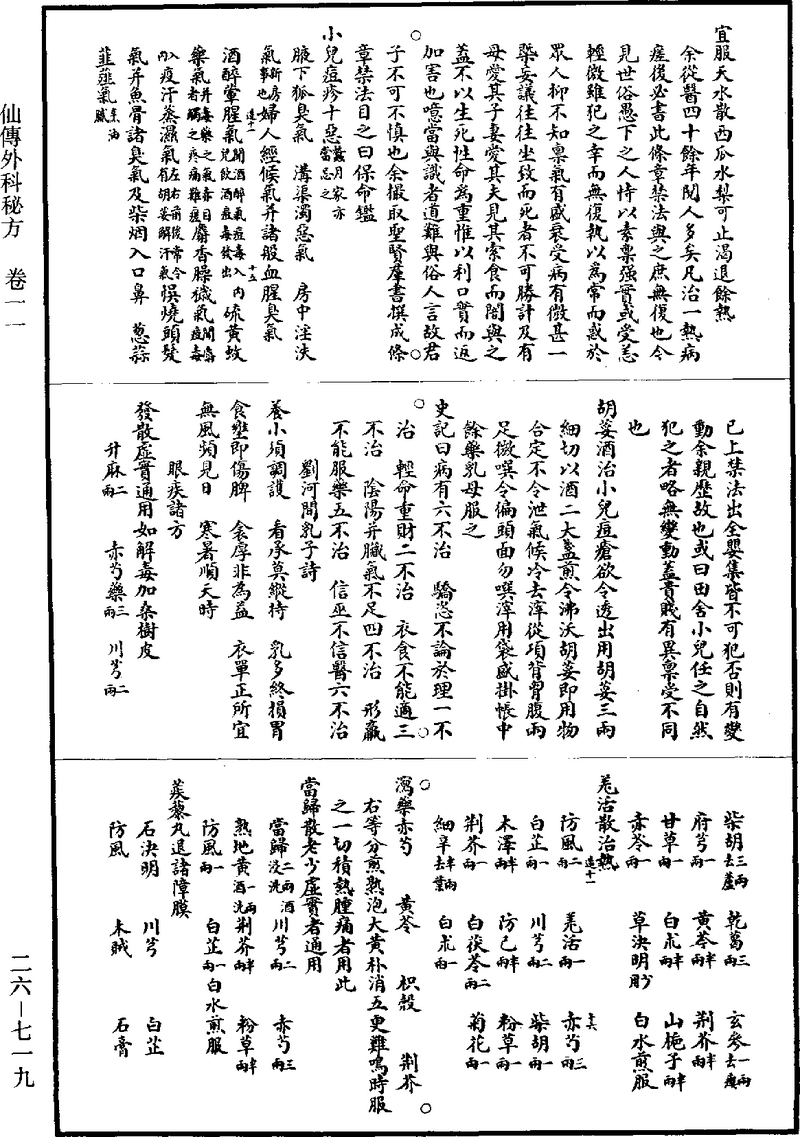 宜服天水散西瓜水梨可止渴退餘熱
余從醫四十餘年閱人多矣凡治一熱病
瘥後必書此條章禁法與之庶無復也今
見世俗愚下之人恃以素稟强實或受恙
輕微雖犯之幸而無復執以爲常而惑於
眾人抑不知稟氣有盛衰受病有微甚一
槩妄議往往坐致而死者不可勝計及有
母愛其子妻愛其夫見其索食而闇與之
蓋不以生死性命為重惟以利口實而返
加害也噫當與識者道難與俗人言故君
子不可不慎也余撮取聖賢羣書撰成條
章禁法目之曰保命鑑
小兒痘疹十惡
腋下狐臭氣　溝渠濁惡氣　房中淫泆
氣新房事也婦人經候氣并諸般血腥臭氣
酒醉葷腥氣聞酒醉氣痘毒入內兒飲酒痘毒發出硫黃蚊
藥氣
麝香臊穢氣
疫汗蒸濕氣
悞燒頭髮
氣并魚骨諸臭氣及柴烟入口鼻　葱蒜
韭薤氣
已上禁法出全嬰集皆不可犯否則有變
動余親歷故也或曰田舍小兒任之自然
犯之者略無變動蓋貴賤有異稟受不同
也
胡荽酒治小兒痘瘡欲令透出用胡荽三兩
細切以酒二大盞煎令沸沃胡荽即用物
合定不令泄氣候冷去滓從項背胷腹兩
足微噀令偏頭面勿噀滓用袋盛掛帳中
餘藥乳母服之
史記曰病有六不治　驕恣不論於理一不
治　輕命重財二不治　衣食不能適三
不治　陰陽并臟氣不足四不治　形羸
不能服藥五不治　信巫不信醫六不治
劉河間乳子詩
養小須調護　看承莫縱恃　乳多終損胃
食壅即傷脾　衾厚非為益　衣單正所宜
無風頻見日　寒暑順天時
眼疾諸方
發散虛實通用如解毒加桑樹皮
升麻二兩　赤芍藥三兩　川芎二兩
柴胡三兩去蘆　乾葛三兩　玄參一兩去蘆
府芎一兩　黃芩半兩　荆芥半兩
甘草一兩　白朮半兩　山梔子半兩
赤苓一兩　草決明　白水煎服
羌活散治熱
防風二兩　羌活一兩　赤芍三兩
白芷一兩　川芎二兩　柴胡一兩
木澤半兩　防己半兩　粉草一兩
荆芥一兩　白茯苓二兩　菊花一兩
細辛半兩去葉　白朮一兩
瀉藥赤芍　黃芩　枳殼　荆芥
右等分煎熟泡大黃朴消五更雞鳴時服
之一切積熱腫痛者用此
當歸散老少虛實者通用
當歸二兩酒浸洗　川芎二兩　赤芍三兩
熟地黃一兩酒洗　荆芥半兩　粉草半兩
防風一兩　白芷一兩　白水煎服
蒺藜丸退諸障膜
石決明　川芎　白芷
防風　木賊　石膏
仙傳外科秘方　卷一一
二六—七一九